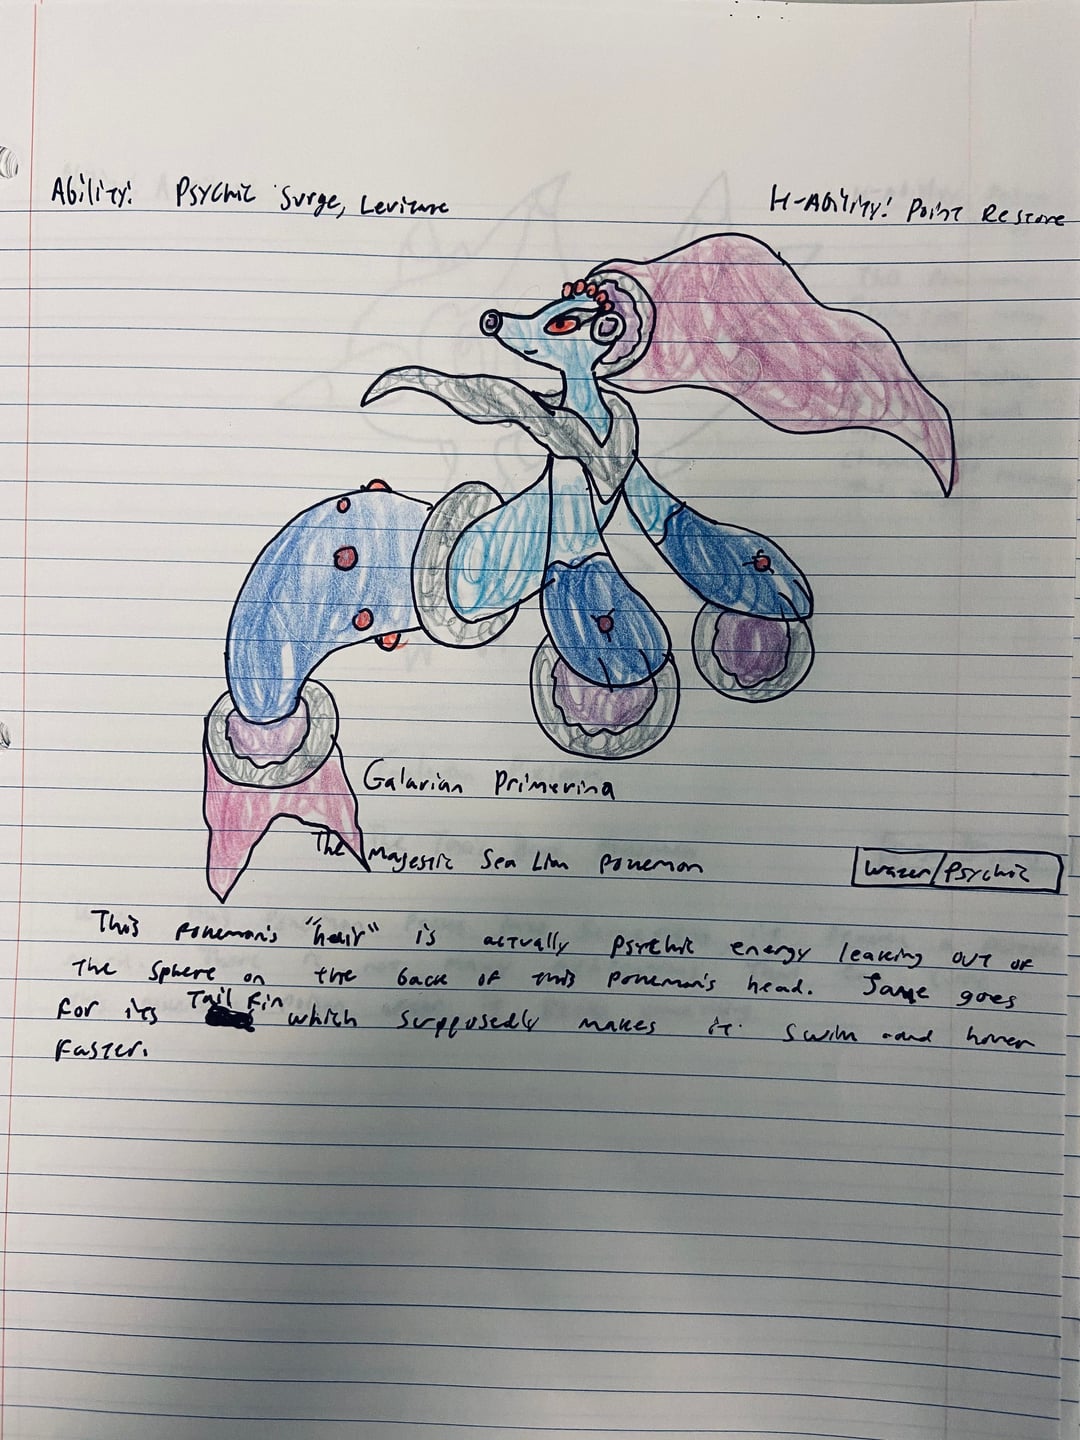 Ability: Psychic Surge, Levitate
H-Ability: Point Restore
Galarian Primerina
The Majestic Sea Lion pokemon
Water/Psychic
This pokemon's "hair" is actually psychic energy leaking out of
the sphere on the back of this pokemon's head. Same goes
for its Tail Fin which supposedly makes it swim and hover
faster.